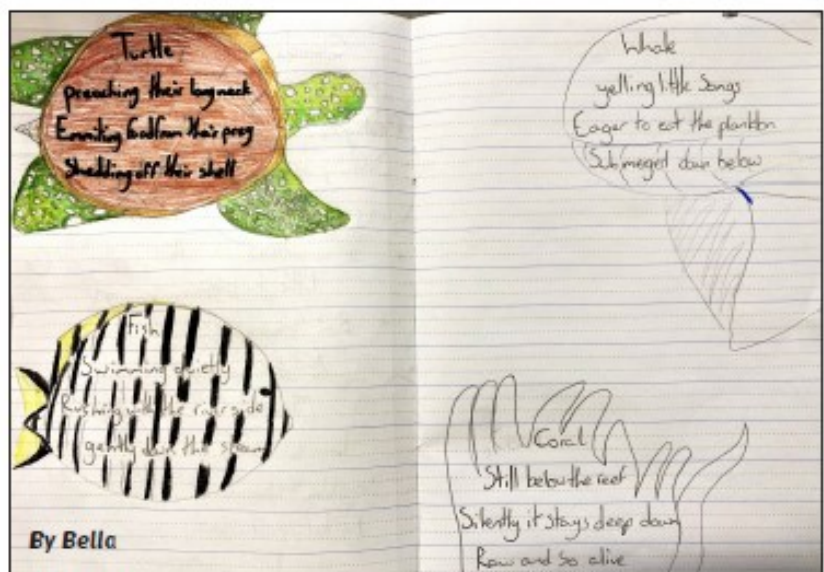 Turtle
preaching their long neck
Emmiting food from their prey
Shedding off their shell
Fish
Swimming quietly
Rushing with the river side
gently down the stream
By Bella
Whale
yelling little Songs
Eager to eat the plankton
Submeged down below
Coral
Still below the reef
Silently it stays deep down
Raw and so alive